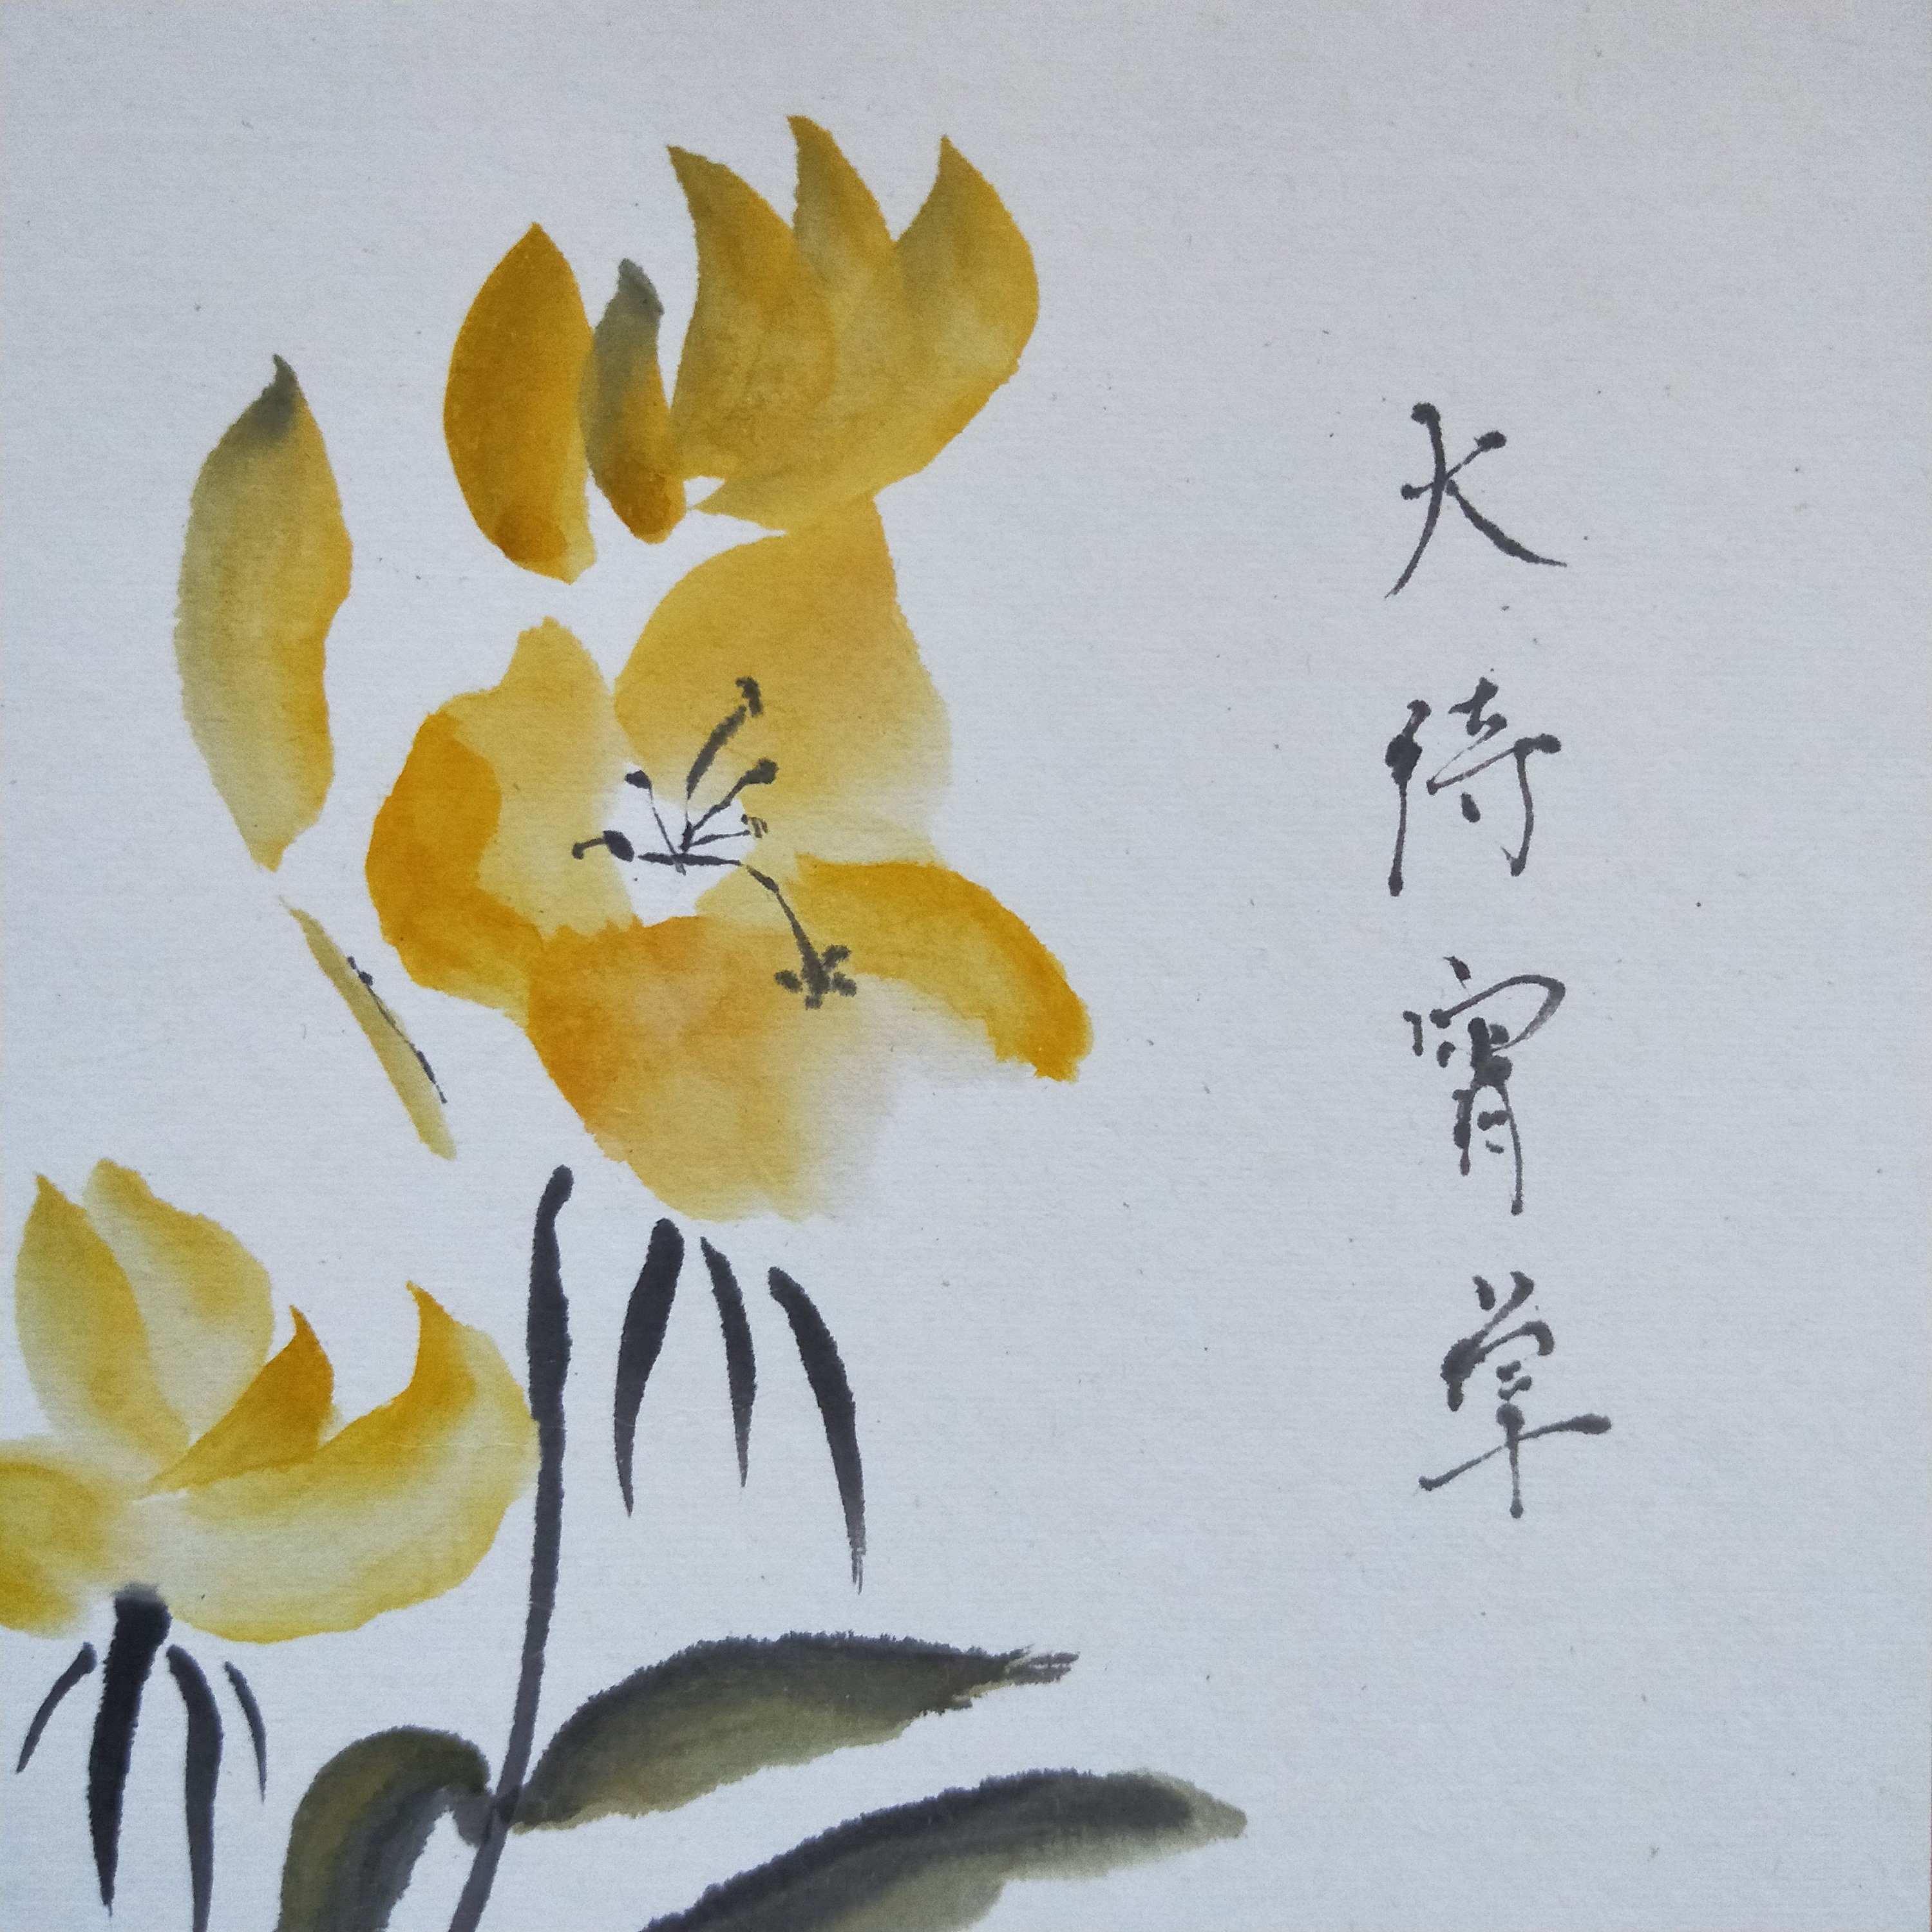 大待宵草